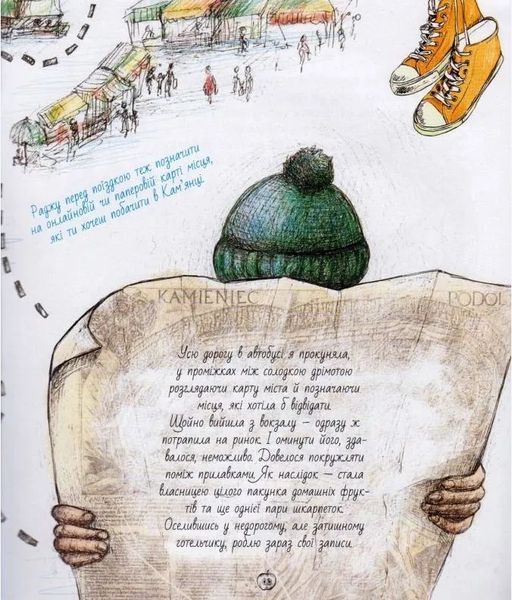 Раджу перед поїздкою теж позначити
на онлайновій чи паперовій карті місця,
які ти хочеш побачити в Кам'янці.
KAMIENIEC
PODOL
Усю дорогу в автобусі я прокуняла,
у проміжках між солодкою дрімотою
розглядаючи карту міста й позначаючи
місця, які хотіла б відвідати.
Щойно вийшла з вокзалу – одразу ж
потрапила на ринок. І оминути його, зда-
валося, неможливо. Довелося покружляти
поміж прилавками. Як наслідок – стала
власницею цілого пакунка домашніх фрук-
тів та ще однієї пари шкарпеток.
Оселившись у недорогому, але затишному
готельчику, роблю зараз свої записи.